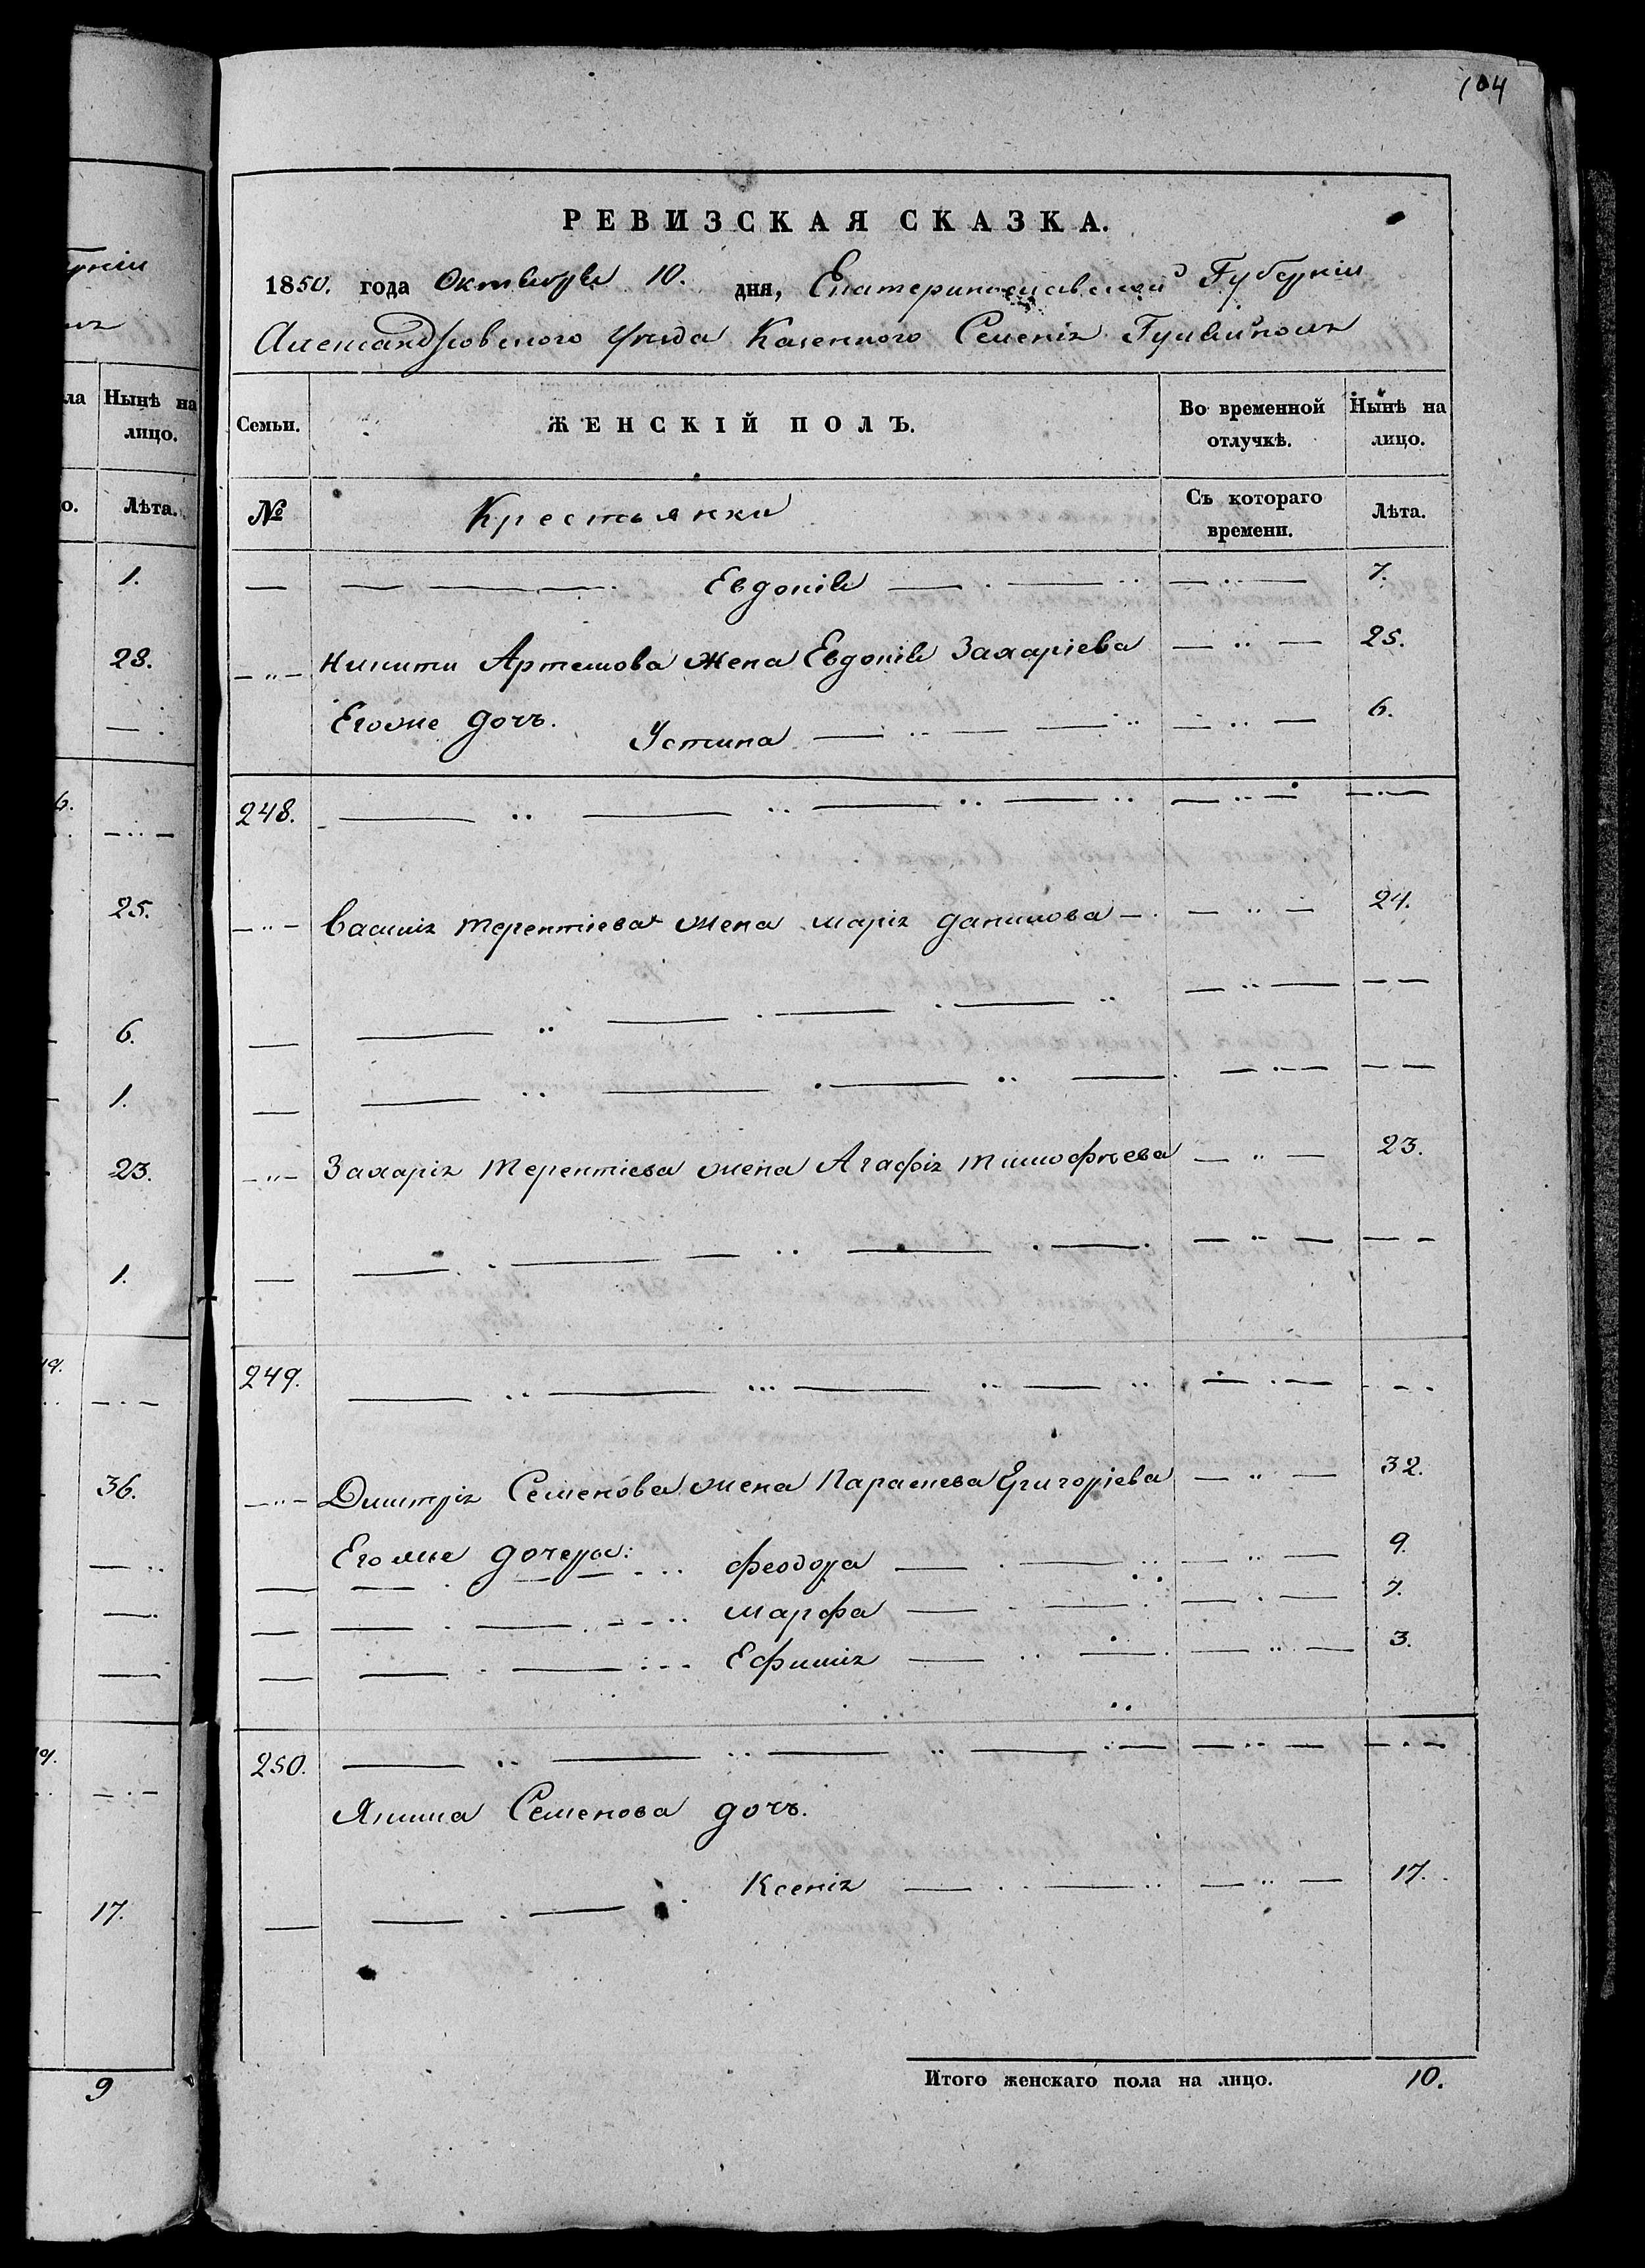 104
РЕВИЗСКАЯ СКАЗКА.
1850. года Октября 10. дня, Екатеринославской Губерніи
Александровского уѣзда Казенного Селенія Гуляйполя
Семьи. ЖЕНСКІЙ ПОЛЪ. Во временной отлучкѣ. Нынѣ на лицо.
№ Крестьянки Съ котораго времени. Лѣта.
— Евдокія — 7.
—"— Никиты Артемова жена Евдокія Захаріева — " — 25.
Егоже дочь. Устина — " — 6.
248. — " — " — " — "
—"— Василія Терентіева жена Марія Данилова — " — 24.
— " — " —
— " — " —
—"— Захарія Терентіева жена Агафія Тимофѣева — " — 23.
— " — " —
249. — " — " — " —
—"— Дмитрія Семенова жена Параскева Григоріева — " — 32.
Егоже дочери: Феодора — " — 9.
— Марфа — 7.
— Ефимія — " — 3.
250. — " — " — " —
Якима Семенова дочь.
— Ксенія — " — 17.
Итого женскаго пола на лицо. 10.
губерніи
ла Нынѣ на лицо.
о. Лѣта.
1.
28.
6.
25.
6.
1.
23.
1.
19.
36.
17.
9